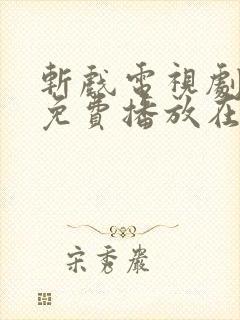 斬戲電視劇
免費播放在
宋秀巖